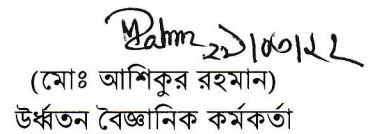 ২১/০৩/২২
(মোঃ আশিকুর রহমান)
উর্ধ্বতন বৈজ্ঞানিক কর্মকর্তা